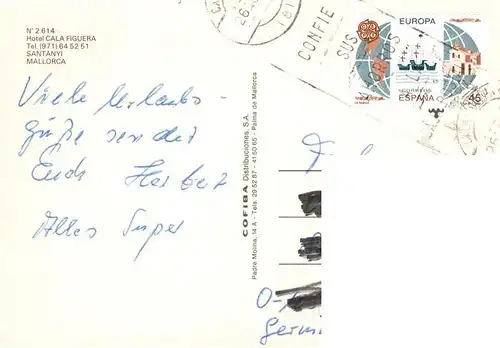 N° 2.614
Hotel CALA FIGUERA
Tel. (971) 64 52 51
SANTANYI
MALLORCA
Viele Urlaubs-
grüße sendet
Euch Herbert
Alles Super
COFIBA Distribuciones, S.A.
Padre Molina, 14 A - Tels. 29 52 87 - 41 50 65 - Palma de Mallorca
CONFIE
SUS
EUROPA
CORREOS
ESPAÑA
O-
Germ